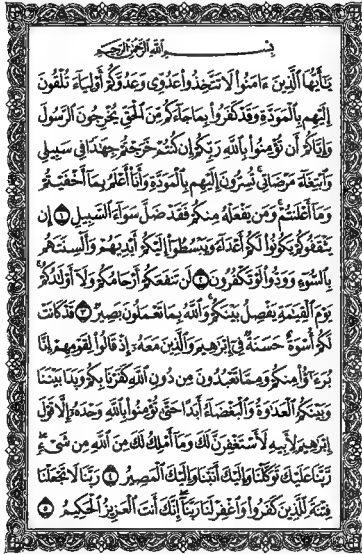 بِسْمِ اللَّهِ الرَّحْمَٰنِ الرَّحِيمِ
يَٰٓأَيُّهَا الَّذِينَ ءَامَنُوا لَا تَتَّخِذُوا عَدُوِّى وَعَدُوَّكُمْ أَوْلِيَآءَ تُلْقُونَ
إِلَيْهِم بِالْمَوَدَّةِ وَقَدْ كَفَرُوا بِمَا جَآءَكُم مِّنَ الْحَقِّ يُخْرِجُونَ الرَّسُولَ
وَإِيَّاكُمْ أَن تُؤْمِنُوا بِاللَّهِ رَبِّكُمْ إِن كُنتُمْ خَرَجْتُمْ جِهَٰدًا فِى سَبِيلِى
وَابْتِغَآءَ مَرْضَاتِى تُسِرُّونَ إِلَيْهِم بِالْمَوَدَّةِ وَأَنَا أَعْلَمُ بِمَآ أَخْفَيْتُمْ
وَمَآ أَعْلَنتُمْ وَمَن يَفْعَلْهُ مِنكُمْ فَقَدْ ضَلَّ سَوَآءَ السَّبِيلِ ١ إِن
يَثْقَفُوكُمْ يَكُونُوا لَكُمْ أَعْدَآءً وَيَبْسُطُوٓا إِلَيْكُمْ أَيْدِيَهُمْ وَأَلْسِنَتَهُم
بِالسُّوٓءِ وَوَدُّوا لَوْ تَكْفُرُونَ ٢ لَن تَنفَعَكُمْ أَرْحَامُكُمْ وَلَآ أَوْلَٰدُكُمْ
يَوْمَ الْقِيَٰمَةِ يَفْصِلُ بَيْنَكُمْ وَاللَّهُ بِمَا تَعْمَلُونَ بَصِيرٌ ٣ قَدْ كَانَتْ
لَكُمْ أُسْوَةٌ حَسَنَةٌ فِىٓ إِبْرَٰهِيمَ وَالَّذِينَ مَعَهُٓ إِذْ قَالُوا لِقَوْمِهِمْ إِنَّا
بُرَءَٰٓؤُا مِنكُمْ وَمِمَّا تَعْبُدُونَ مِن دُونِ اللَّهِ كَفَرْنَا بِكُمْ وَبَدَا بَيْنَنَا
وَبَيْنَكُمُ الْعَدَٰوَةُ وَالْبَغْضَآءُ أَبَدًا حَتَّىٰ تُؤْمِنُوا بِاللَّهِ وَحْدَهُٓ إِلَّا قَوْلَ
إِبْرَٰهِيمَ لِأَبِيهِ لَأَسْتَغْفِرَنَّ لَكَ وَمَآ أَمْلِكُ لَكَ مِنَ اللَّهِ مِن شَىْءٍ
رَّبَّنَا عَلَيْكَ تَوَكَّلْنَا وَإِلَيْكَ أَنَبْنَا وَإِلَيْكَ الْمَصِيرُ ٤ رَبَّنَا لَا تَجْعَلْنَا
فِتْنَةً لِّلَّذِينَ كَفَرُوا وَاغْفِرْ لَنَا رَبَّنَآ إِنَّكَ أَنتَ الْعَزِيزُ الْحَكِيمُ ٥